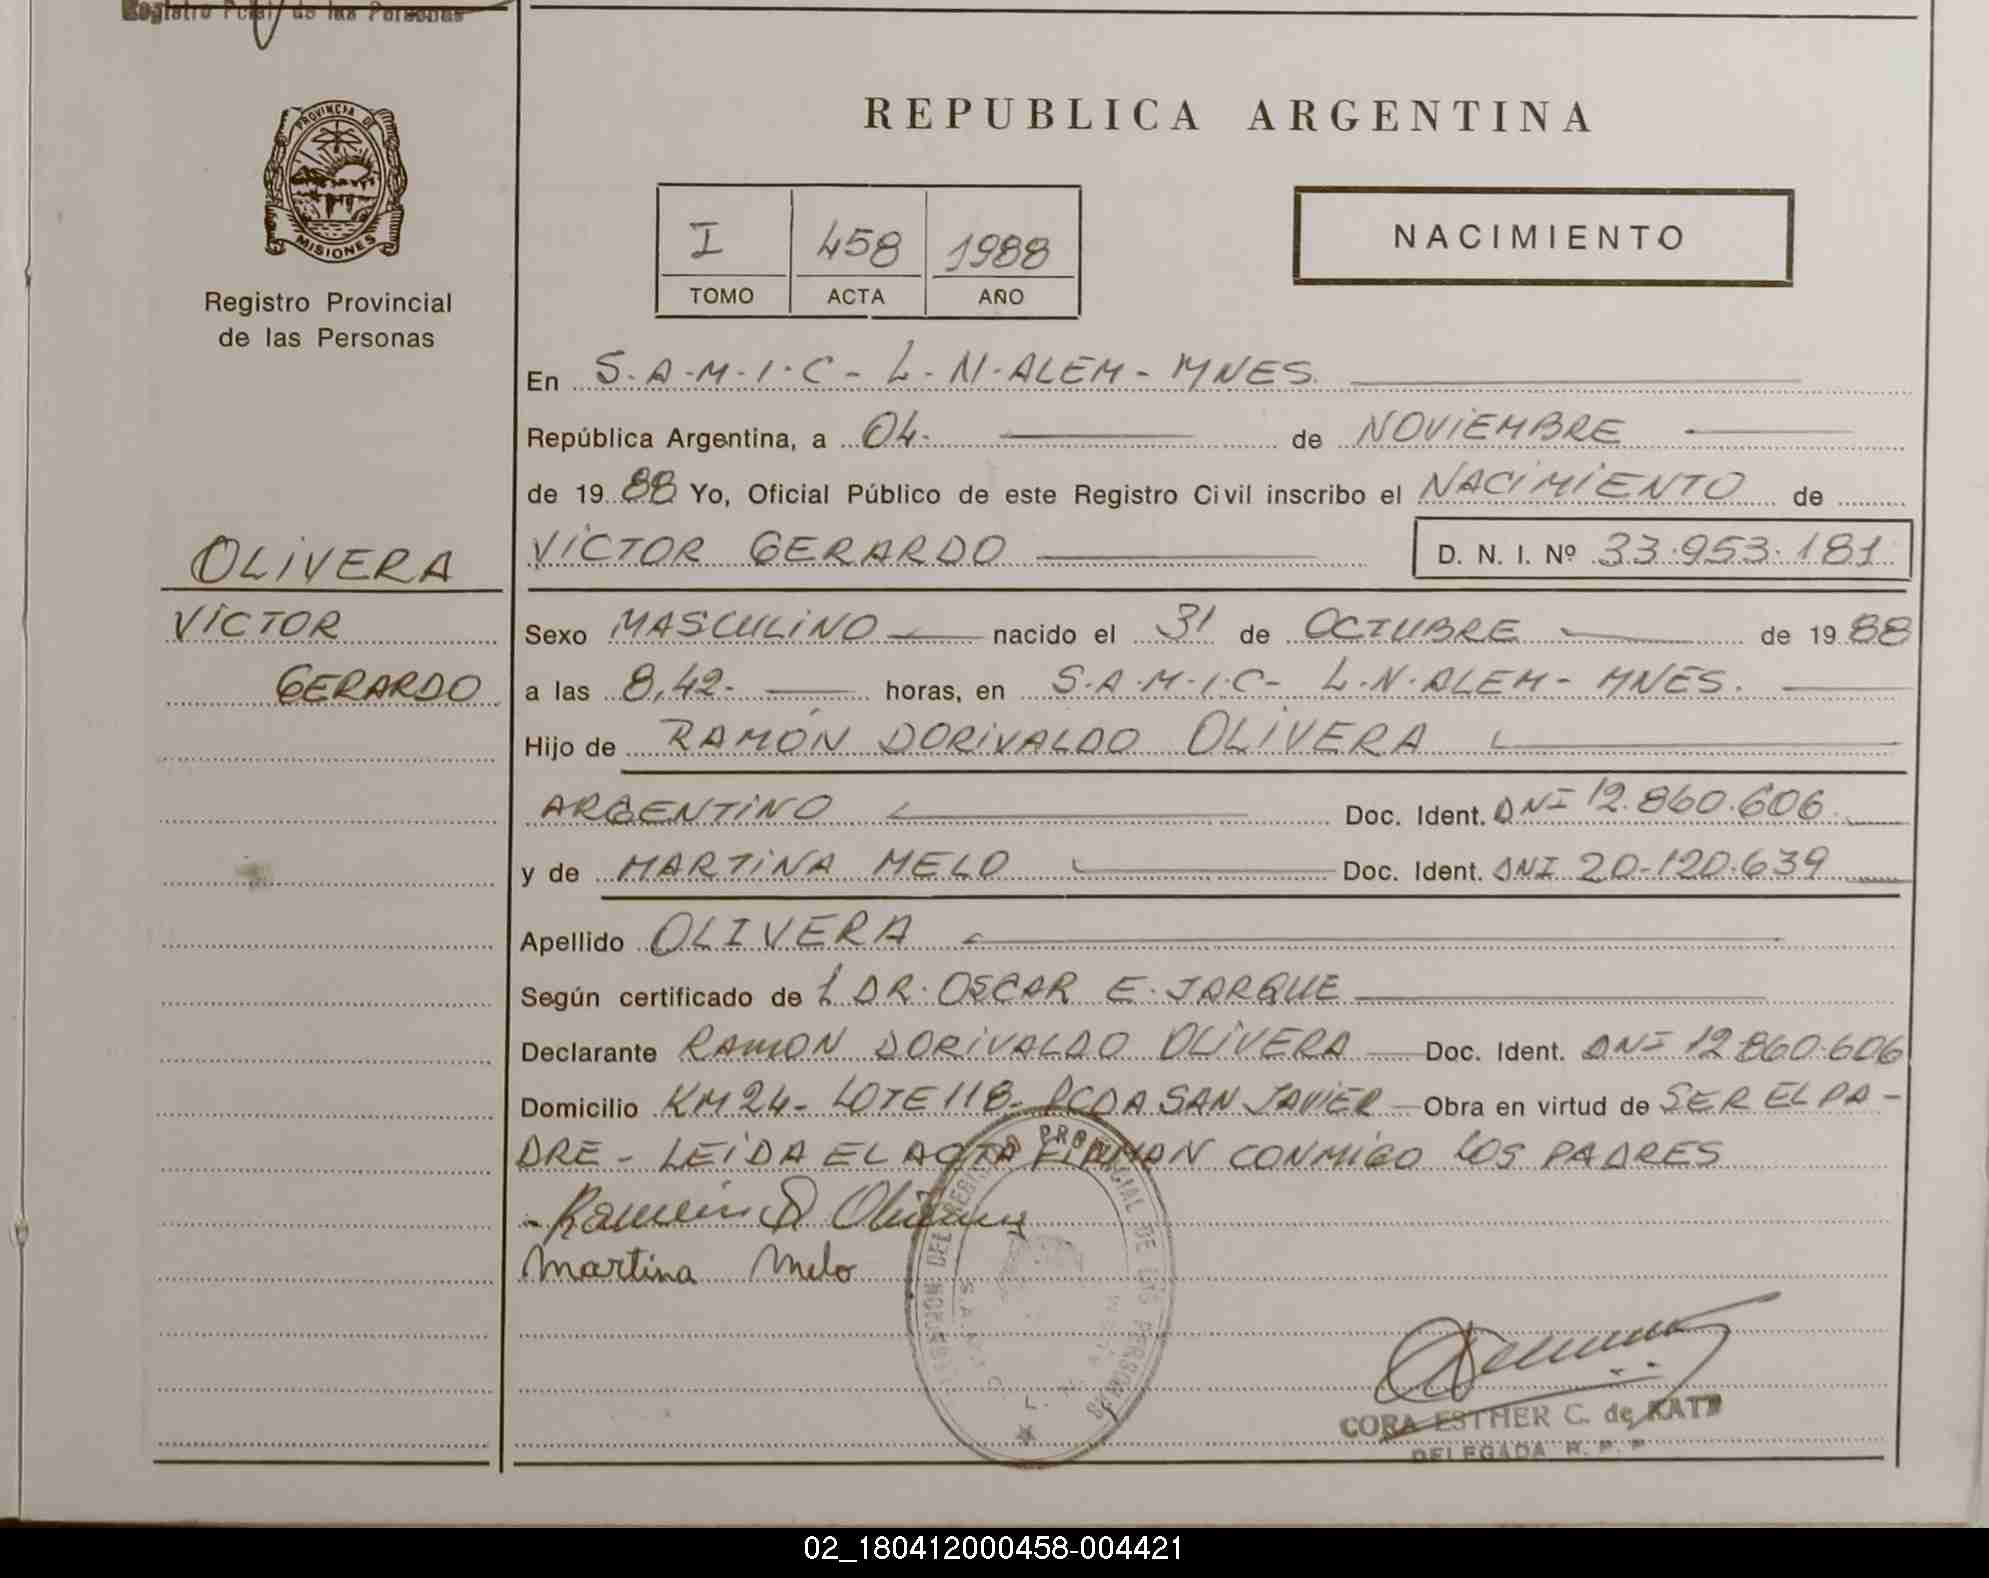 Registro Pcial. de las Personas
PROVINCIA DE
MISIONES
Registro Provincial
de las Personas
OLIVERA
VICTOR
GERARDO
REPUBLICA ARGENTINA
I 458 1988
TOMO ACTA AÑO
NACIMIENTO
En S.A.M.I.C - L.N.ALEM - MNES.
República Argentina, a 04. de NOVIEMBRE
de 1988 Yo, Oficial Público de este Registro Civil inscribo el NACIMIENTO de
VICTOR GERARDO D. N. I. Nº 33.953.181
Sexo MASCULINO nacido el 31 de OCTUBRE de 1988
a las 8,42- horas, en S.A.M.I.C- L.N.ALEM - MNES.
Hijo de RAMÓN DORIVALDO OLIVERA
ARGENTINO Doc. Ident. DNI 12.860.606
y de MARTINA MELO Doc. Ident. DNI 20-120.639
Apellido OLIVERA
Según certificado de l DR. OSCAR E. JARQUE
Declarante RAMON DORIVALDO OLIVERA Doc. Ident. DNI 12860.606
Domicilio KM 24 - LOTE 118 - PCDA SAN JAVIER Obra en virtud de SER EL PA-
DRE - LEIDA EL ACTA FIRMAN CONMIGO LOS PADRES
Ramón D Olivera
Martina Melo
DEL REGISTRO PROVINCIAL DE LAS PERSONAS
L. N. ALEM
CORA ESTHER C. de KATZ
DELEGADA R. P. P
02_180412000458-004421